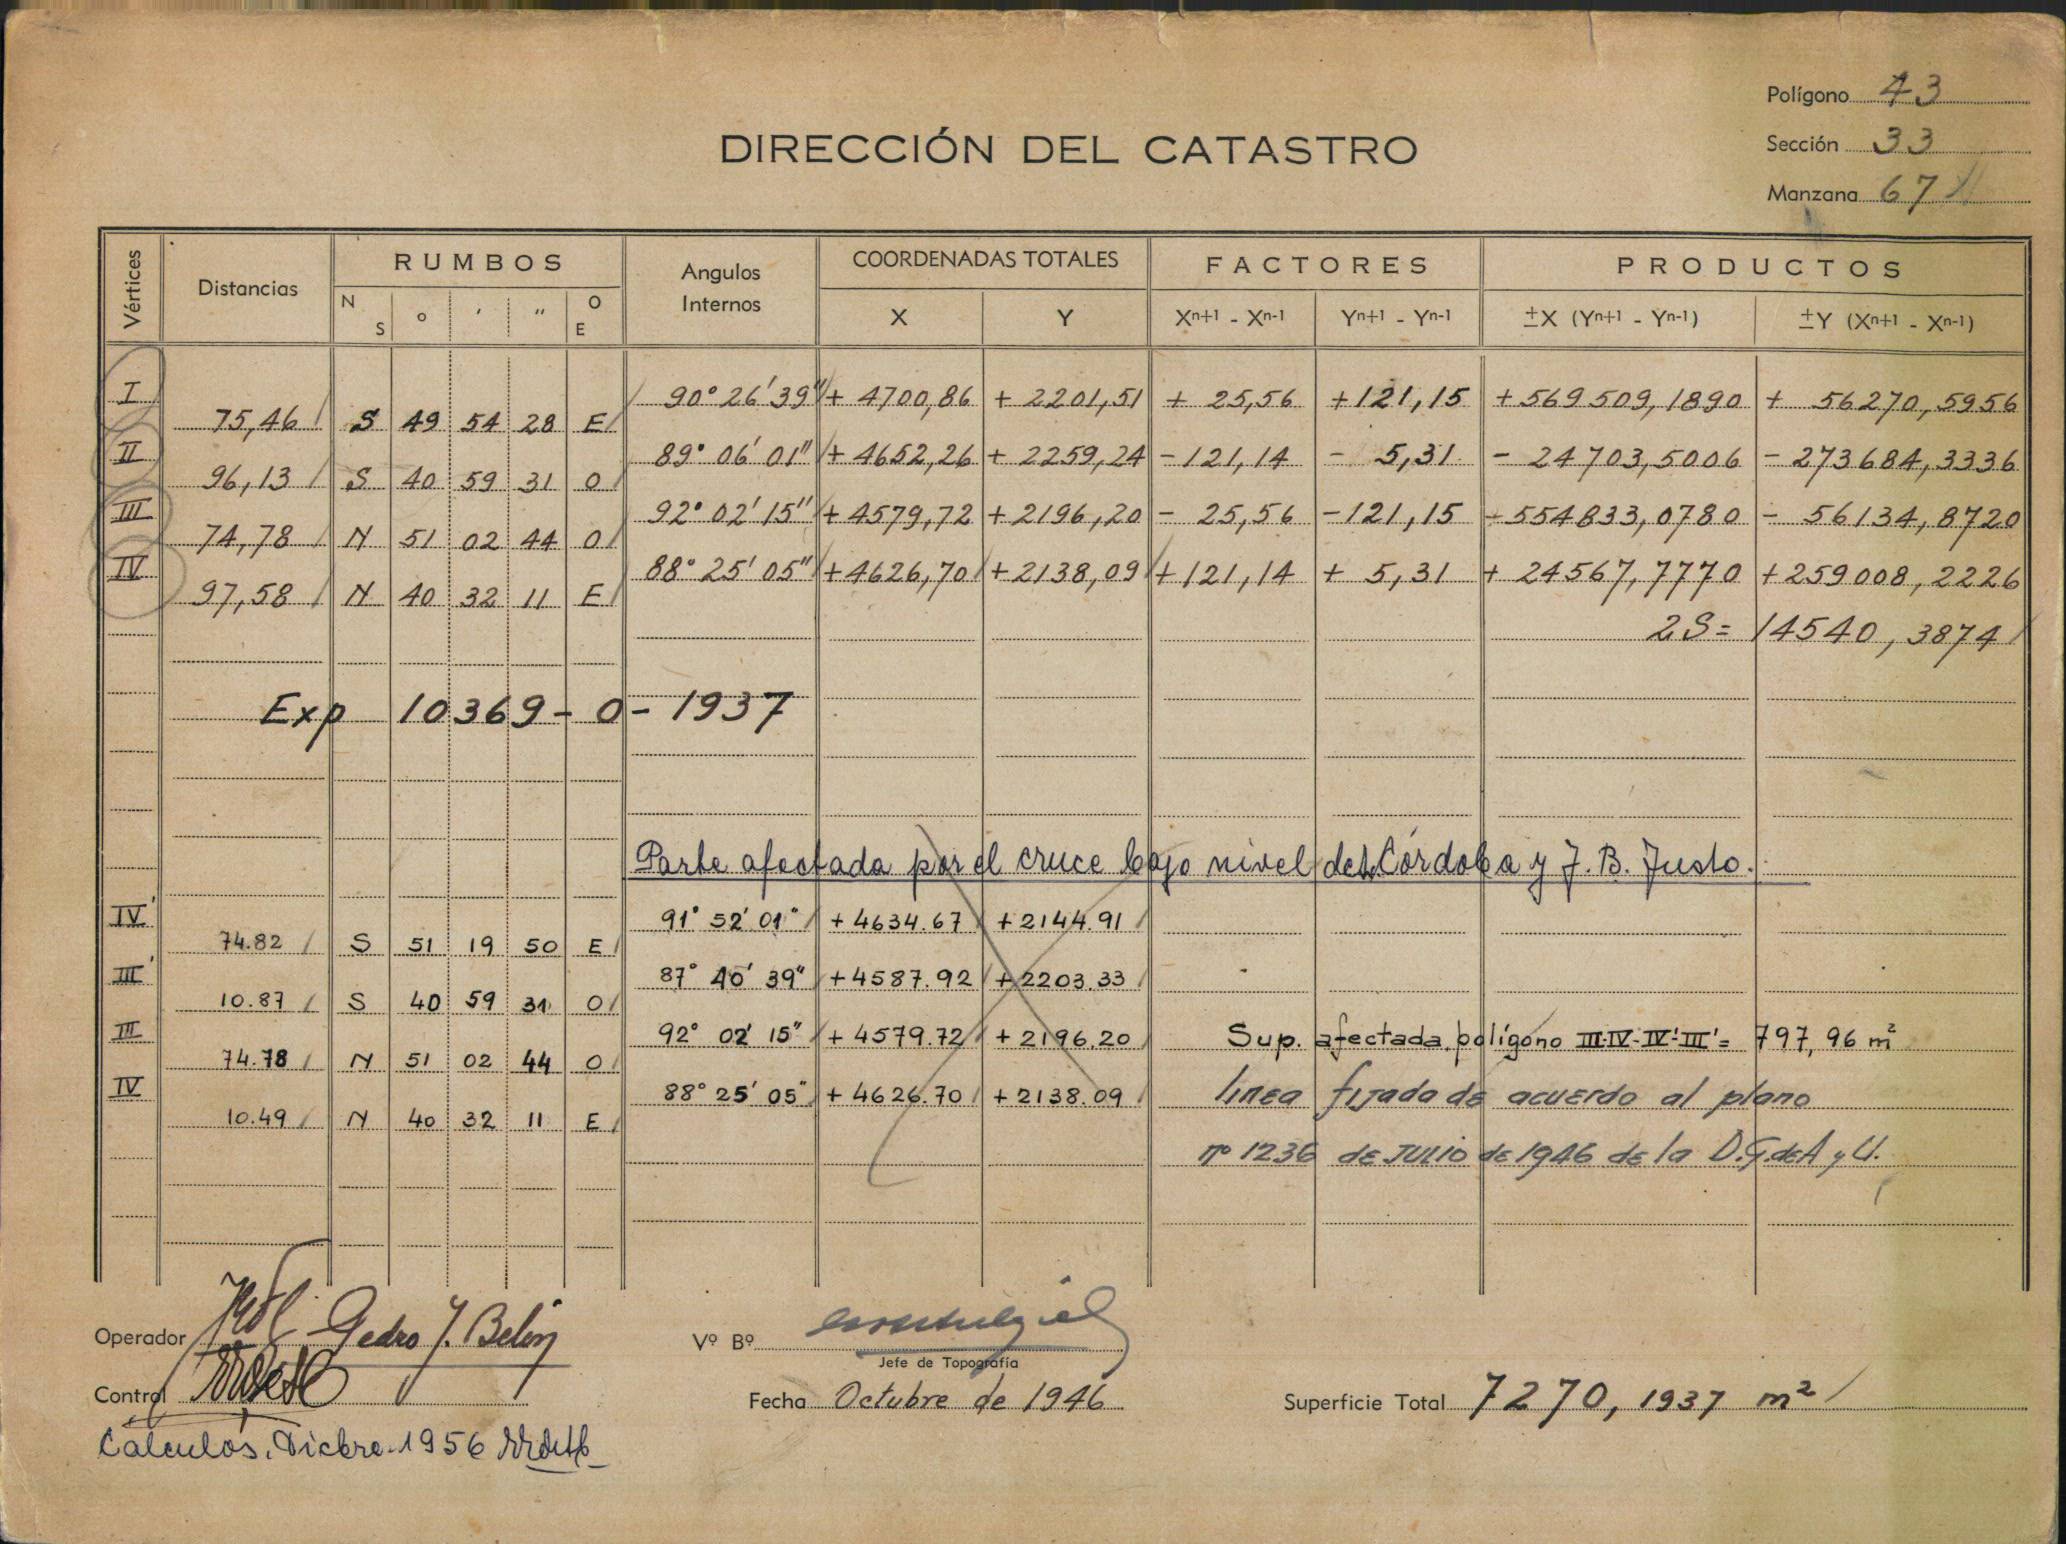 Polígono 43
DIRECCIÓN DEL CATASTRO
Sección 33
Manzana 67
Vértices Distancias RUMBOS Angulos Internos COORDENADAS TOTALES FACTORES PRODUCTOS
N S ° ' " O E X Y Xⁿ⁺¹ - Xⁿ⁻¹ Yⁿ⁺¹ - Yⁿ⁻¹ ±X (Yⁿ⁺¹ - Yⁿ⁻¹) ±Y (Xⁿ⁺¹ - Xⁿ⁻¹)
I 90° 26' 39" + 4700,86 + 2201,51 + 25,56 +121,15 + 569509,1890 + 56270,5956
75,46 S 49 54 28 E
II 89° 06' 01" + 4652,26 + 2259,24 -121,14 - 5,31 - 24703,5006 - 273684,3336
96,13 S 40 59 31 O
III 92° 02' 15" + 4579,72 + 2196,20 - 25,56 -121,15 -554833,0780 - 56134,8720
74,78 N 51 02 44 O
IV 88° 25' 05" +4626,70 +2138,09 +121,14 + 5,31 + 24567,7770 +259008,2226
97,58 N 40 32 11 E
2S= 14540,3874
Exp 10369-0-1937
Parte afectada por el cruce bajo nivel de Córdoba y J. B. Justo.
IV' 91° 52' 01" +4634.67 +2144.91
74.82 S 51 19 50 E
III' 87° 40' 39" +4587.92 +2203.33
10.87 S 40 59 31 O
III 92° 02' 15" +4579.72 +2196.20 Sup. afectada polígono III-IV-IV'-III'= 797,96 m²
74.78 N 51 02 44 O
IV 88° 25' 05" +4626.70 +2138.09 línea fijada de acuerdo al plano
10.49 N 40 32 11 E
nº 1236 de JULIO de 1946 de la D.G.deA y U.
Operador Pedro J. Belón Vº Bº
Jefe de Topografía
Control Fecha Octubre de 1946 Superficie Total 7270,1937 m²
Cálculos. Dicbre. 1956